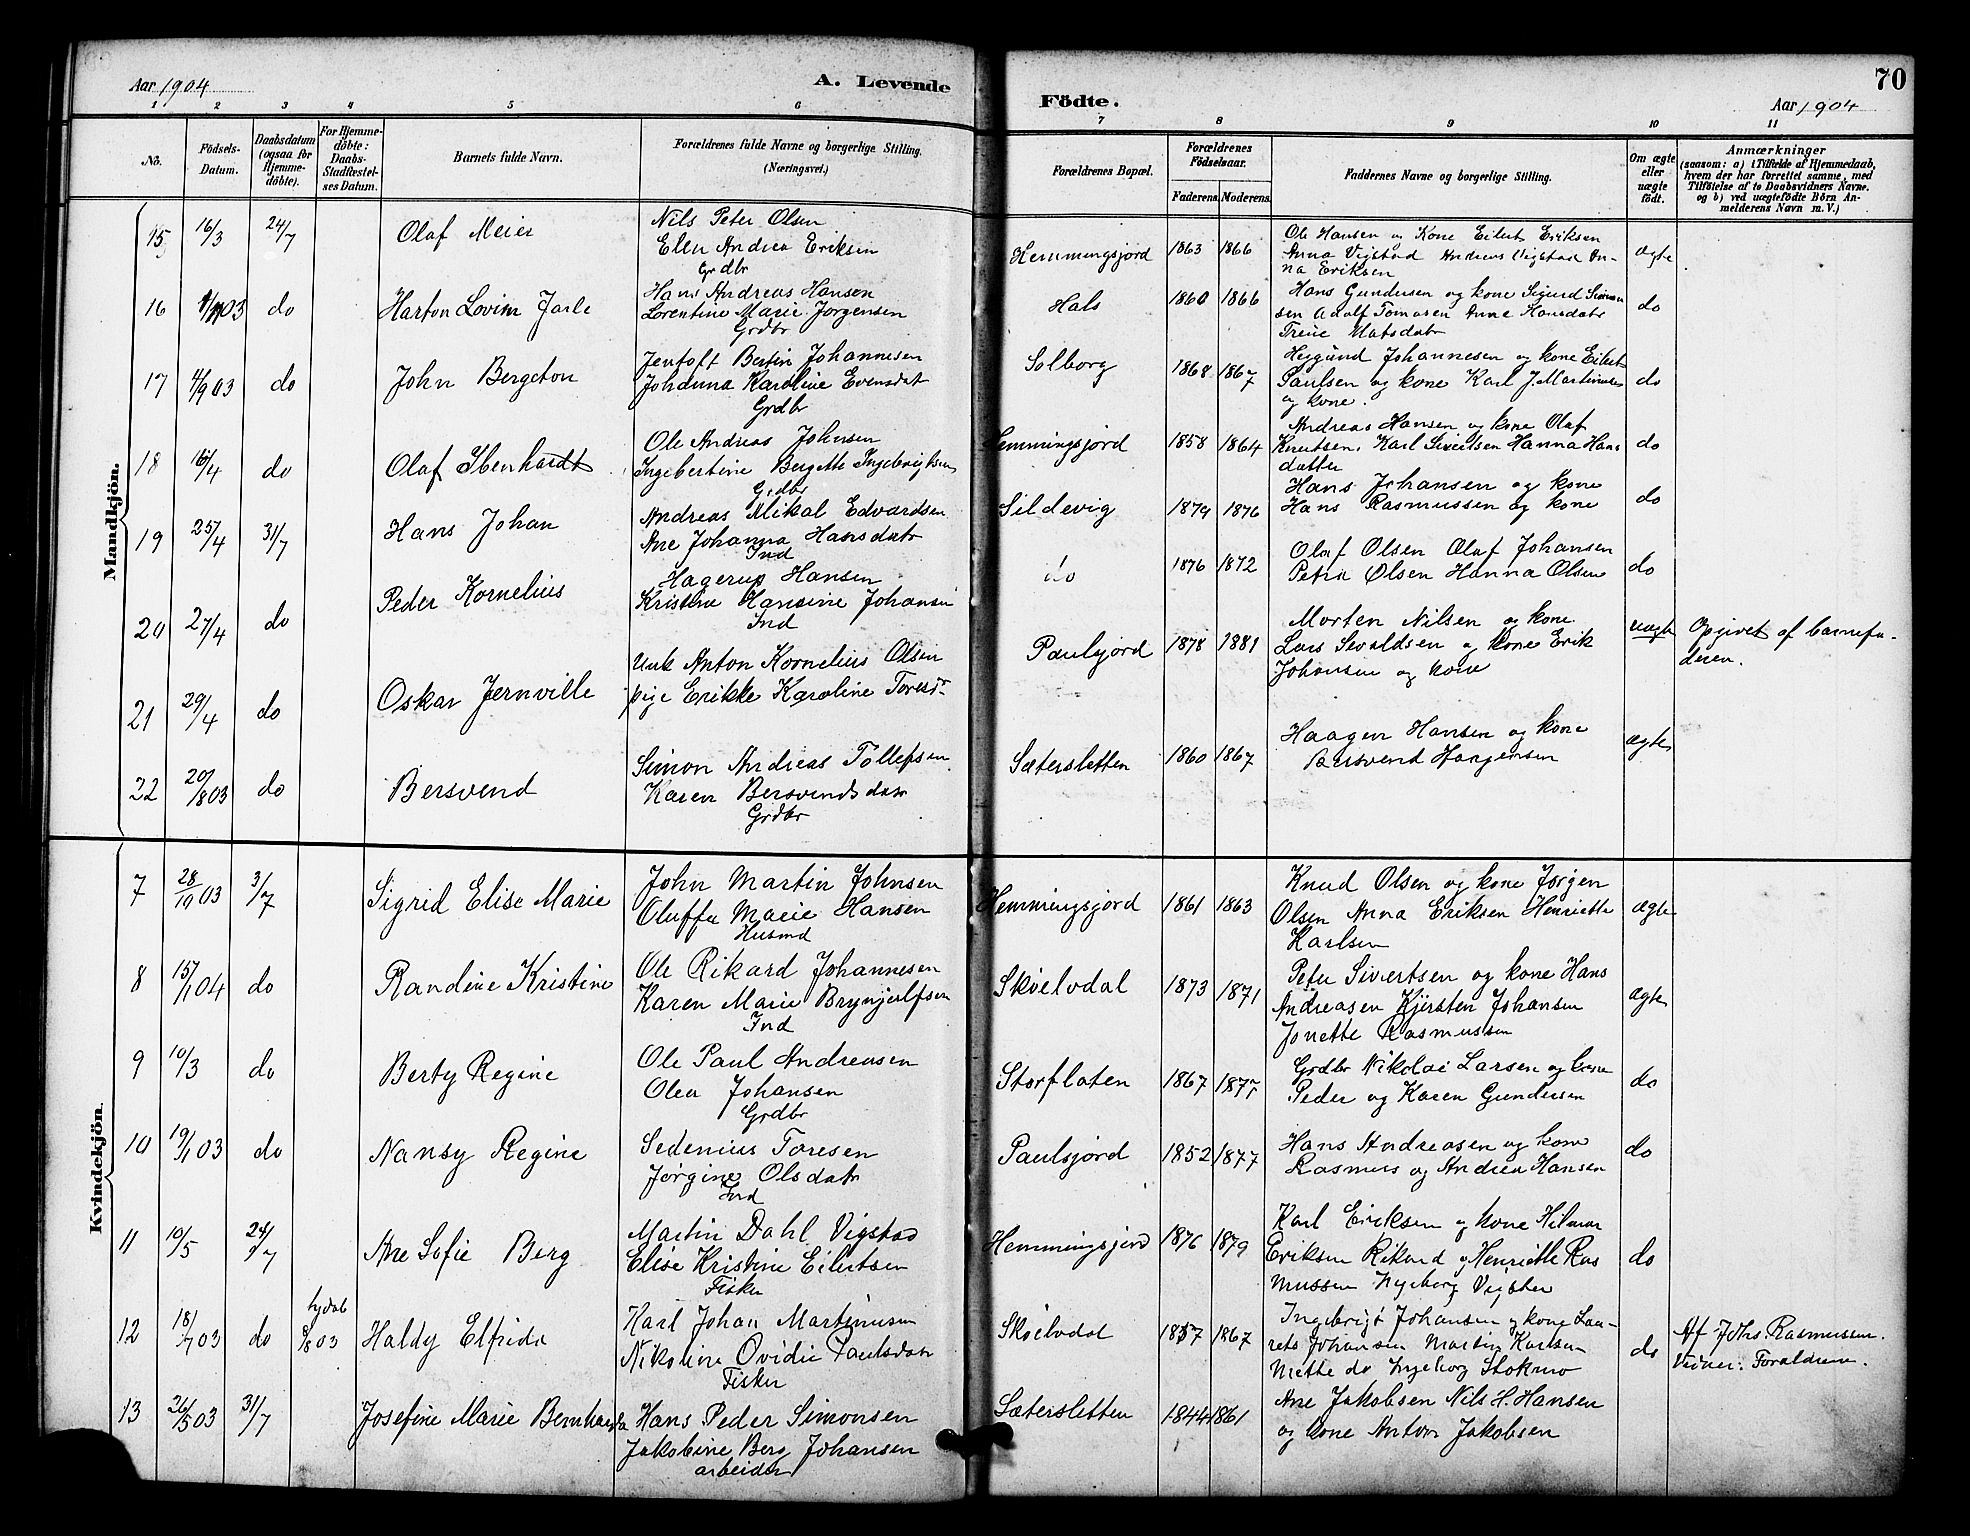 Aar 1904
A. Levende
Födte.
70
Aar 1904
1 2 3 4 5 6 7 8 9 10 11
No.
Födsels-Datum.
Daabsdatum (ogsaa for Hjemme-döbte).
For Hjemme-döbte: Daabs-Stadfæstel-ses Datum.
Barnets fulde Navn.
Forældrenes fulde Navne og borgerlige Stilling.
(Næringsvei.)
Forældrenes Bopæl.
Forældrenes Födselsaar.
Faderens. Moderens.
Faddernes Navne og borgerlige Stilling.
Om ægte eller uægte födt.
Anmærkninger
(saasom: a) i Tilfælde af Hjemmedaab, hvem der har forrettet samme, med Tilföielse af to Daabsvidners Navne. og b) ved uægtefödte Börn An-melderens Navn m. V.)
Mandkjön.
15 16/3 24/7 Olaf Meier
Nils Peter Olsen
Elen Andrea Eriksen
Grdbr
Hemmingsjord 1863 1866
Ole Hansen og Kone Eilert Eriksen
Anna Vigstad Andreas Vigstad An-
na Eriksen
ægte
16 03 do Harton Lovim Jarle
Hans Andreas Hansen
Lorentine Marie Jørgensen
Grdbr
Hals 1860 1866
Hans Gundersen og kone Sigurd Simon
sen Adolf Tomasen Anne Hansdatr
Trene Matsdatr
do
17 4/9 03 do John Bergeton
Jentoft Bertin Johannesen
Johanna Karoline Evensdat
Grdbr
Solborg 1868 1867
Heggund Johannesen og kone Eilert
Paulsen og kone Karl J. Martinusen
og kone.
do
18 16/4 do Olaf Ibenhardt
Ole Andreas Johnsen
Ingebertine Bergette Ingebrigtsen
Grdbr
Hemmingsjord 1858 1864
Andreas Hansen og kone Olaf
Knutsen, Karl Sivertsen Hanna Hans
datter
do
19 25/4 31/7 Hans Johan
Andreas Mikal Edvardsen
Ane Johanna Hansdatr
Ind
Sildevig 1879 1876
Hans Johansen og kone
Hans Rasmussen og kone
do
20 27/4 do Peder Kornelius
Hagerup Hansen
Kristine Hansine Johansen
Ind
do 1876 1872
Olaf Olsen Olaf Johansen
Petra Olsen Hanna Olsen
do
21 29/4 do Oskar Jernville
Unk Anton Kornelius Olsen
pige Erikke Karoline Toresdr
Paulsjord 1878 1881
Morten Nilsen og kone
Lars Sivaldsen og kone Erik
Johansen og kone
uægte
Opgivet af barnefa-
deren.
22 20/8 03 do Bersvend
Simon Andreas Tollefsen
Karen Bersvendsdatr
Grdbr
Sætersletten 1860 1867
Haagen Hansen og kone
Bersvend Haagensen
ægte
Kvindekjön.
7 28/10 03 3/7 Sigrid Elise Marie
John Martin Johnsen
Oluffa Marie Hansen
Husmd
Hemmingsjord 1861 1863
Knud Olsen og kone Jørgen
Olsen Anna Eriksen Henriette
Karlsen
ægte
8 15/1 04 do Randine Kristine
Ole Rikard Johannesen
Karen Marie Brynjulfsen
Ind
Skøelvdal 1873 1871
Peter Sivertsen og kone Hans
Andreasen Kjersten Johansen
Jonette Rasmussen
ægte
9 10/3 do Berty Regine
Ole Paul Andreasen
Olea Johansen
Grdbr
Storflaten 1867 1877
Grdbr Nikolai Larsen og kone
Peder og Karen Gundersen
do
10 19/1 03 do Nansy Regine
Sedenius Toresen
Jørgine Olsdatr
Ind
Paulsjord 1852 1877
Hans Andreasen og kone
Rasmus og Andrea Hansen
do
11 10/5 24/7 Ane Sofie Berg
Martin Dahl Vigstad
Elise Kristine Eilertsen
Fisker
Hemmingsjord 1876 1879
Karl Eriksen og kone Hilmar
Eriksen Rikard og Henriette Ras
mussen Ingeborg Vigstad
do
12 18/7 03 do hjdøbt 03 Haldy Elfrida
Karl Johan Martinusen
Nikoline Ovidie Paulsdatr
Fisker
Skøelvdal 1857 1867
Ingebrigt Johansen og kone Lau-
rets Johansen Martin Karlsen
Mette do Ingeborg Stokmo
do
Af Johs. Rasmussen.
Vidner: Forældrene.
13 26/5 03 31/7 Josefine Marie Bernharda
Hans Peder Simonsen
Jakobine Berg Johansen
arbeider
Sætersletten 1844 1861
Ane Jakobsen Nils H. Hansen
og kone Anton Jakobsen